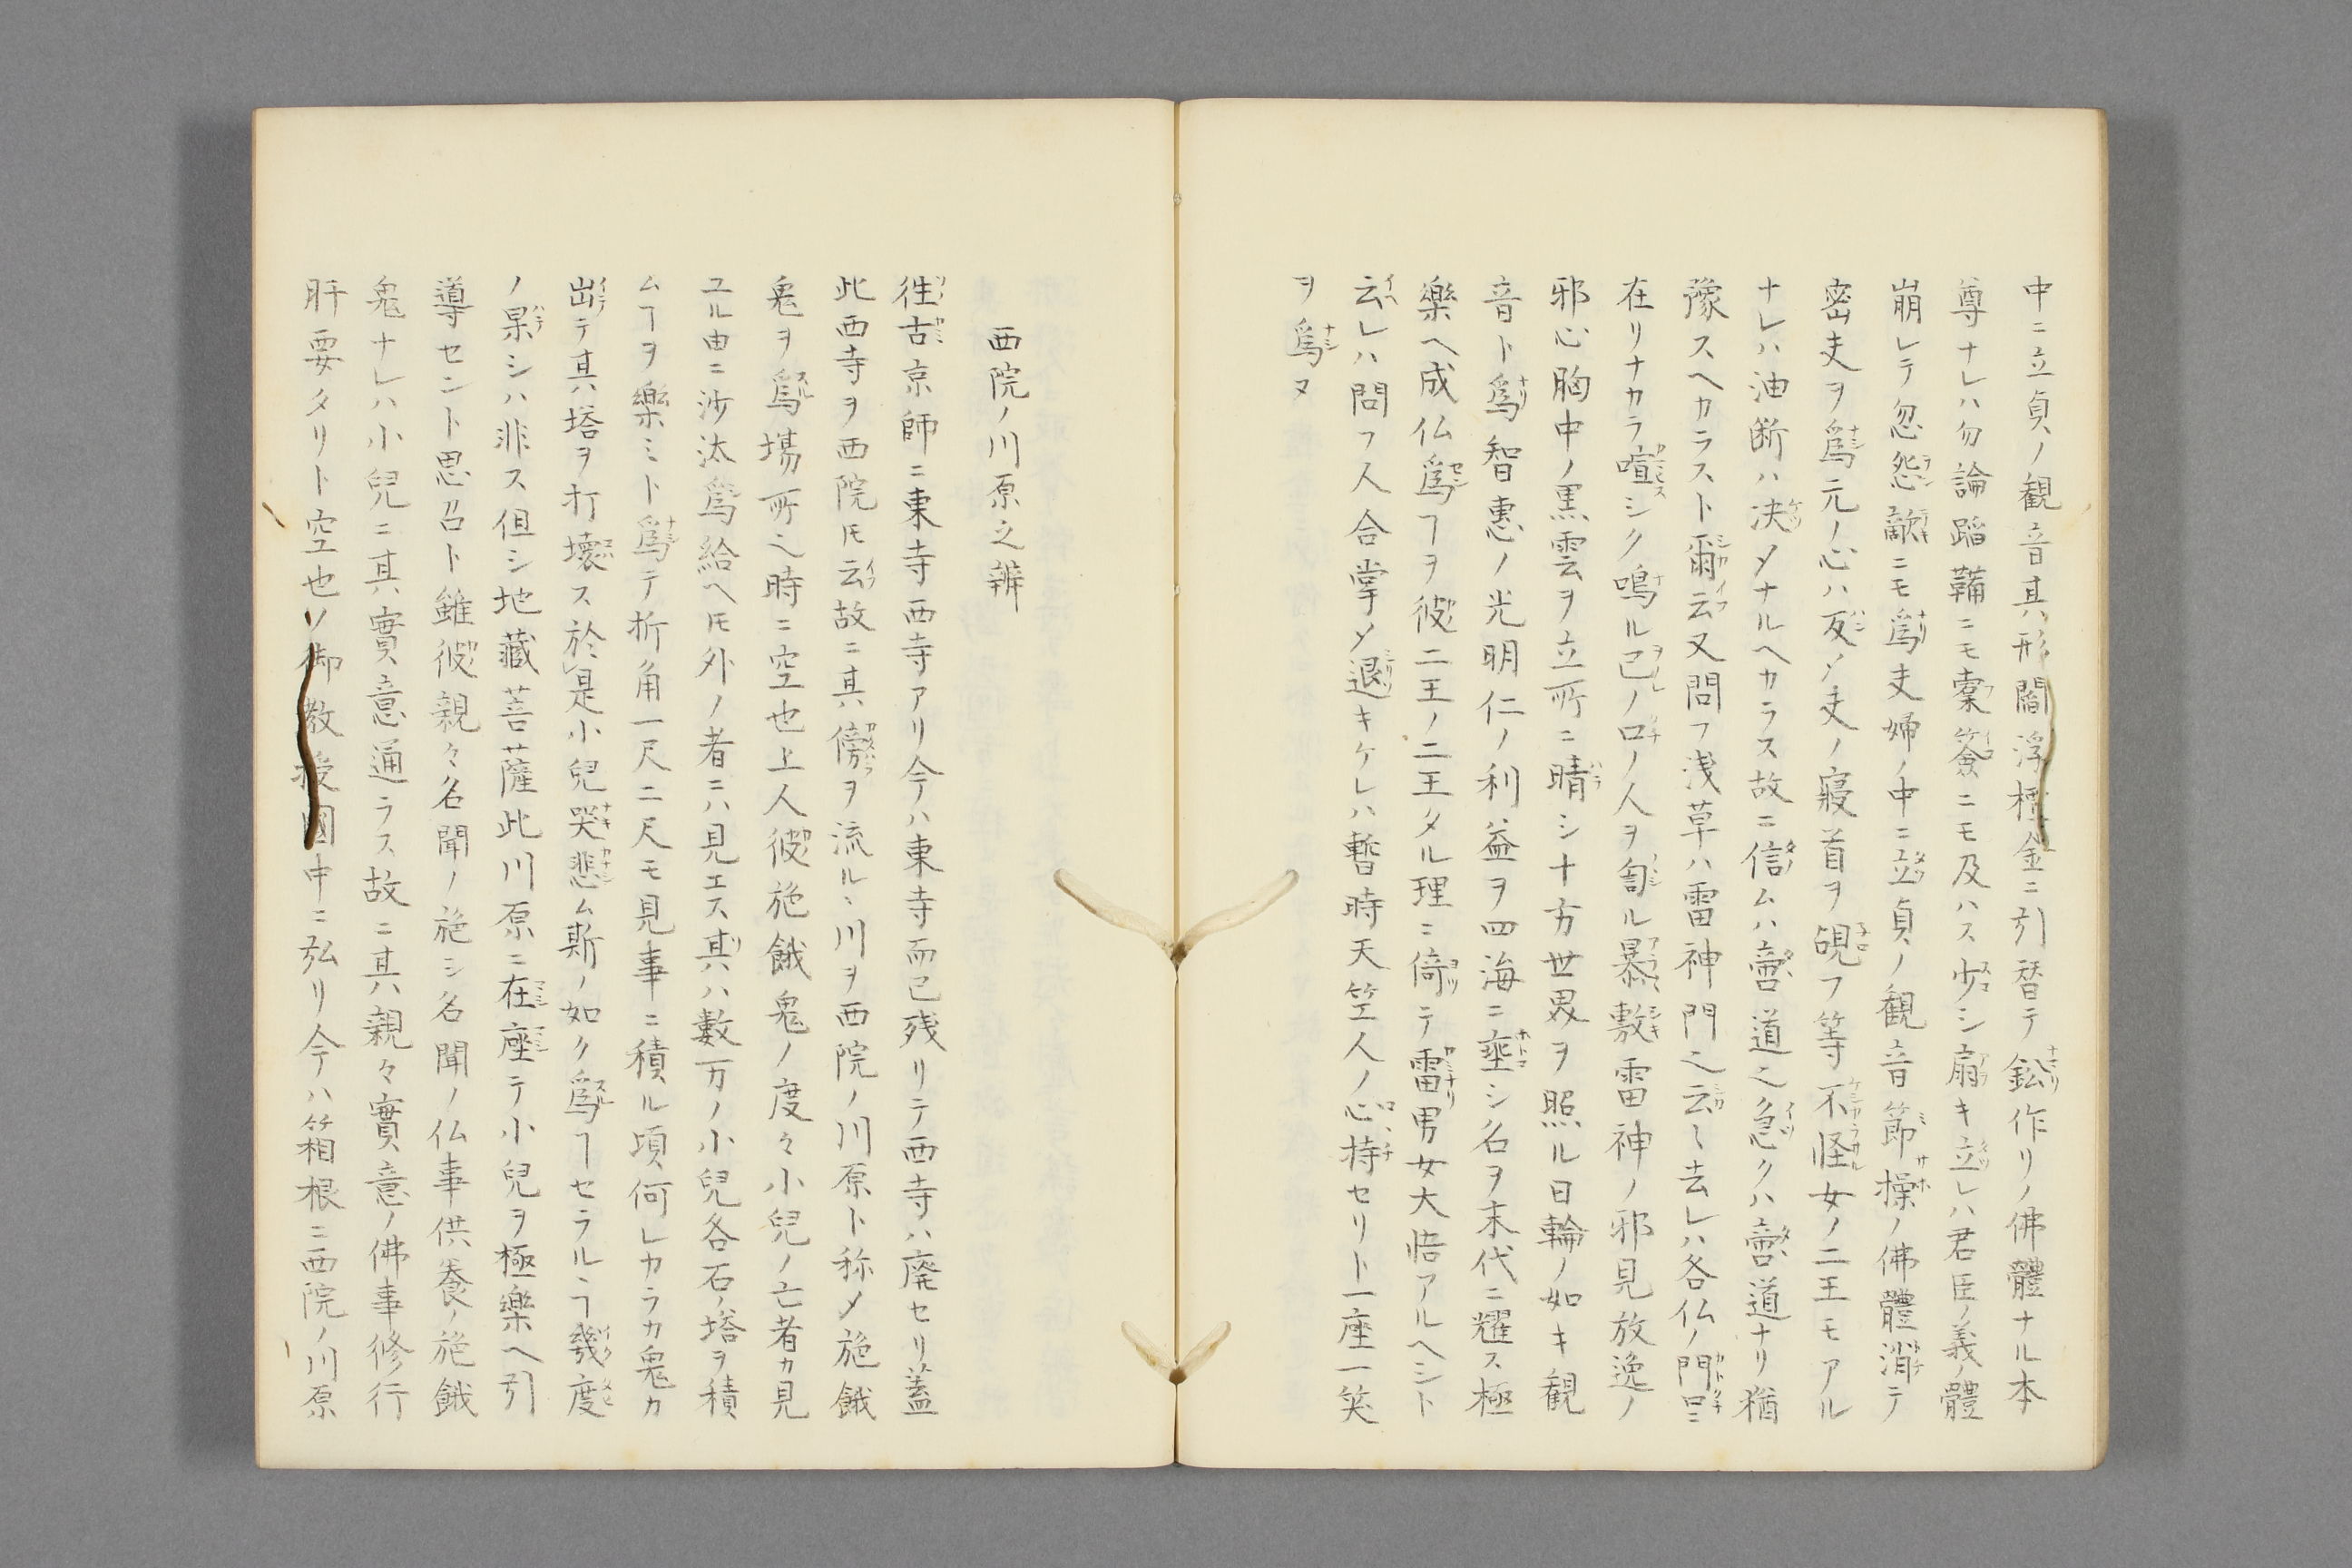 中ニ立貞ノ観音其形閻浮檀金ニ引替テ鈆作リノ佛體ナル本
尊ナレハ勿論蹈鞴ニモ橐籥ニモ及ハス少シ扇キ立レハ君臣ノ義ノ體
崩レテ忽怨敵ニモ爲夫婦ノ中ニ立貞ノ観音節操ノ佛體消テ
密夫ヲ爲元ノ心ハ反メ夫ノ寢首ヲ覗フ等不怪女ノ二王モアル
ナレハ油断ハ决メナルヘカラス故ニ信ムハ啻道之急クハ啻道ナリ猶
豫スヘカラスト爾云又問フ浅草ハ雷神門之云〻去レハ各仏ノ門口ニ
在リナカラ喧シク鳴ル已レノ口ノ人ヲ訇ル暴敷雷神ノ邪見放逸ノ
邪心胸中ノ黒雲ヲ立所ニ晴シ十方世界ヲ照ル日輪ノ如キ観
音ト爲智惠ノ光明仁ノ利益ヲ四海ニ垂シ名ヲ末代ニ耀ス極
樂ヘ成仏爲ヿヲ彼二王ノ二王タル理ニ倚テ雷男女大悟アルヘシト
云レハ問フ人合掌メ退キケレハ暫時天竺人ノ心持セリト一座一笑
ヲ爲ヌ
西院ノ川原之辨
徃古京師ニ東寺西寺アリ今ハ東寺而已残リテ西寺ハ廃セリ蓋
此西寺ヲ西院圧云故ニ其傍ヲ流ルヽ川ヲ西院ノ川原ト称メ施餓
鬼ヲ爲場所之時ニ空也上人彼施餓鬼ノ度々小兒ノ亡者カ見
ユル由ニ沙汰爲給ヘ圧外ノ者ニハ見エス其ハ數万ノ小兒各石ノ塔ヲ積
ムヿヲ樂ミト爲テ折角一尺二尺モ見事ニ積ル頃何レカラカ鬼カ
出テ其塔ヲ打壞ス於是小兒哭悲ム斯ノ如ク爲ヿセラルヽヿ幾度
ノ果シハ非ス但シ地藏菩薩此川原ニ在座テ小兒ヲ極樂ヘ引
導セント思召ト雖彼親々名聞ノ施シ名聞ノ仏事供養ノ施餓
鬼ナレハ小兒ニ其實意通ラス故ニ其親々實意ノ佛事修行
肝要タリト空也ソ御教授國中ニ弘リ今ハ箱根ニ西院ノ川原